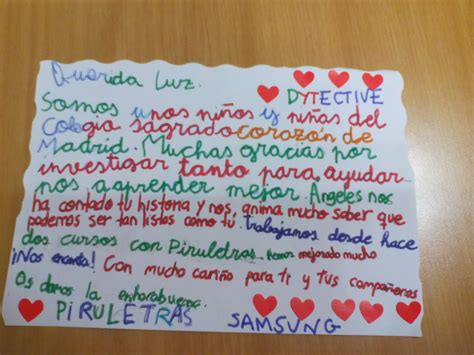 Querida Luz.
DYTECTIVE
Somos unos niños y niñas del
Colegio sagrado corazón de
Madrid. Muchas gracias por
investigar tanto para ayudar-
nos a aprender mejor. Ángeles nos
ha contado tu historia y nos, anima mucho saber que
podemos ser tan listos como tú. trabajamos desde hace
dos cursos con Piruletras. Hemos mejorado mucho
¡Nos encanta! Con mucho cariño para ti y tus compañeros
Os damos la enhorabuena.
PIRULETRAS SAMSUNG